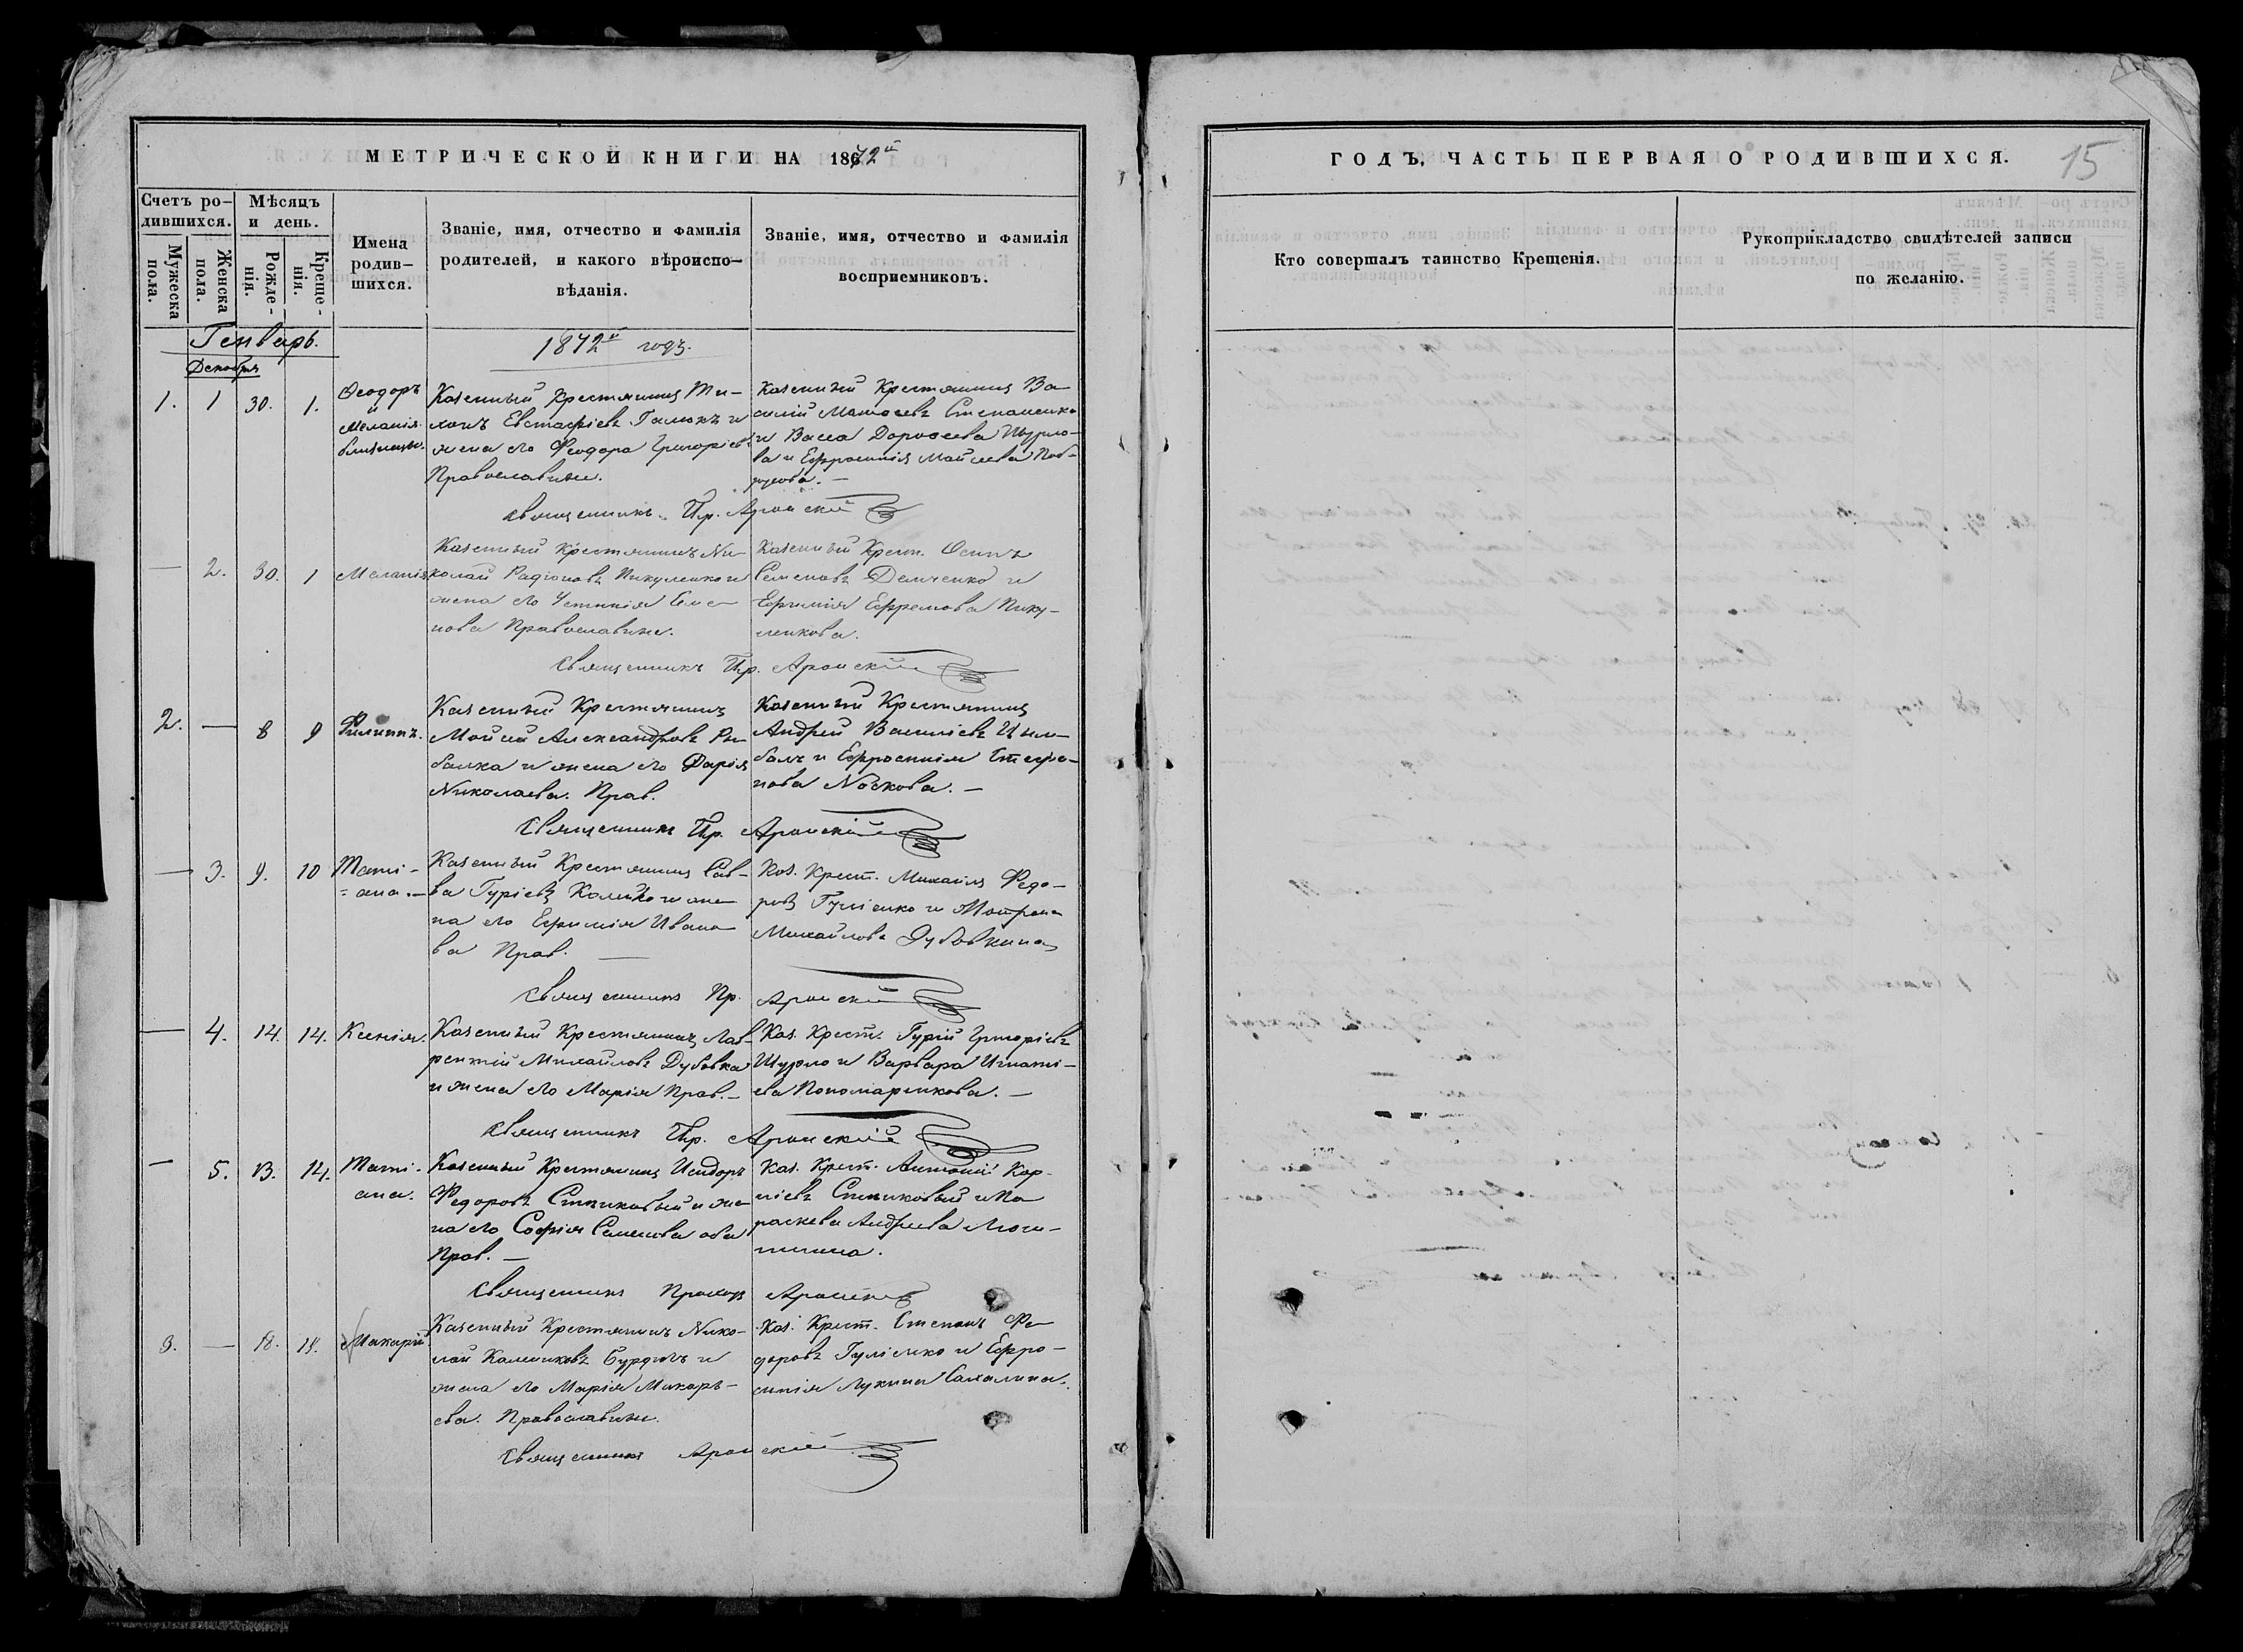 МЕТРИЧЕСКОЙ КНИГИ НА 1872й
ГОДЪ, ЧАСТЬ ПЕРВАЯ О РОДИВШИХСЯ.
15
Счетъ ро-
дившихся.
Мужеска пола.
Женска пола.
Мѣсяцъ
и день.
Рожде-
нія.
Креще-
нія.
Имена
родив-
шихся.
Званіе, имя, отчество и фамилія
родителей, и какого вѣроиспо-
вѣданія.
Званіе, имя, отчество и фамилія
восприемниковъ.
Кто совершалъ таинство Крещенія.
Рукоприкладство свидѣтелей записи
по желанію.
Генварь.
1872й годъ.
Декабря
1. 1 30. 1.
Ѳеодоръ
и
Меланія
близнецы.
Казенный Крестянинъ Ти-
хонъ Евстафіевъ и
жена его Феодора Григоріев
Православные.
Казенный Крестянинъ Ва-
силій Степаненко
и Васса Дороѳеева Шурло-
ва и Ефросинія Мойсеева
Священникъ Пр. Аронскій
— 2. 30. 1 Меланія
Казенный Крестянинъ Ни-
колай Радіоновъ Пикуленко и
жена его Устинія Семе-
нова Православные.
Казенный Крест. Осипъ
Семеновъ Демченко и
Ефимія Ефремова Пику-
ленкова.
Священникъ Пр. Аронскій
2. — 8 9 Филиппъ.
Казенный Крестянинъ
Мойсей Александровъ Ры-
балка и жена его Дарія
Николаева. Прав.
Казенный Крестянинъ
Андрей Василіевъ Цым-
балъ и Ефросинія Стефа-
нова Ночкова. —
Священникъ Пр. Аронскій
— 3. 9. 10
Тати-
=ана. —
Казенный Крестянинъ Сав-
ва Гуріевъ и же-
на его Ефимія Ивано-
ва Прав. —
Каз. Крест. Михаилъ Федо-
ровъ Гуліенко и Мотрона
Михайлова Дубовкина
Священникъ Пр. Аронскій
— 4. 14. 14. Ксенія.
Казенный Крестянинъ Лав-
рентій Михайловъ Дубовка
и жена его Марія Прав. —
Каз. Крест. Гурій Григоріевъ
Шурло и Варвара Игнаті-
ева Пономаренкова. —
Священникъ Пр. Аронскій
— 5. 13. 14.
Тати-
ана.
Казенный Крестянинъ Исидоръ
Федоровъ и же-
на его Софія Семенова оба
Прав. —
Каз. Крест. Антоній Кор-
ніевъ и Па
раскева Андреева
Священникъ Прохоръ Аронскій
3. — 18. 18. Макарій
Казенный Крестянинъ Нико-
лай Бурдюгъ и
жена его Марія Макарь-
ева. Православные.
Каз. Крест. Степанъ Фе
доровъ Гуліенко и Ефро-
синія Лукина
Священникъ Аронскій